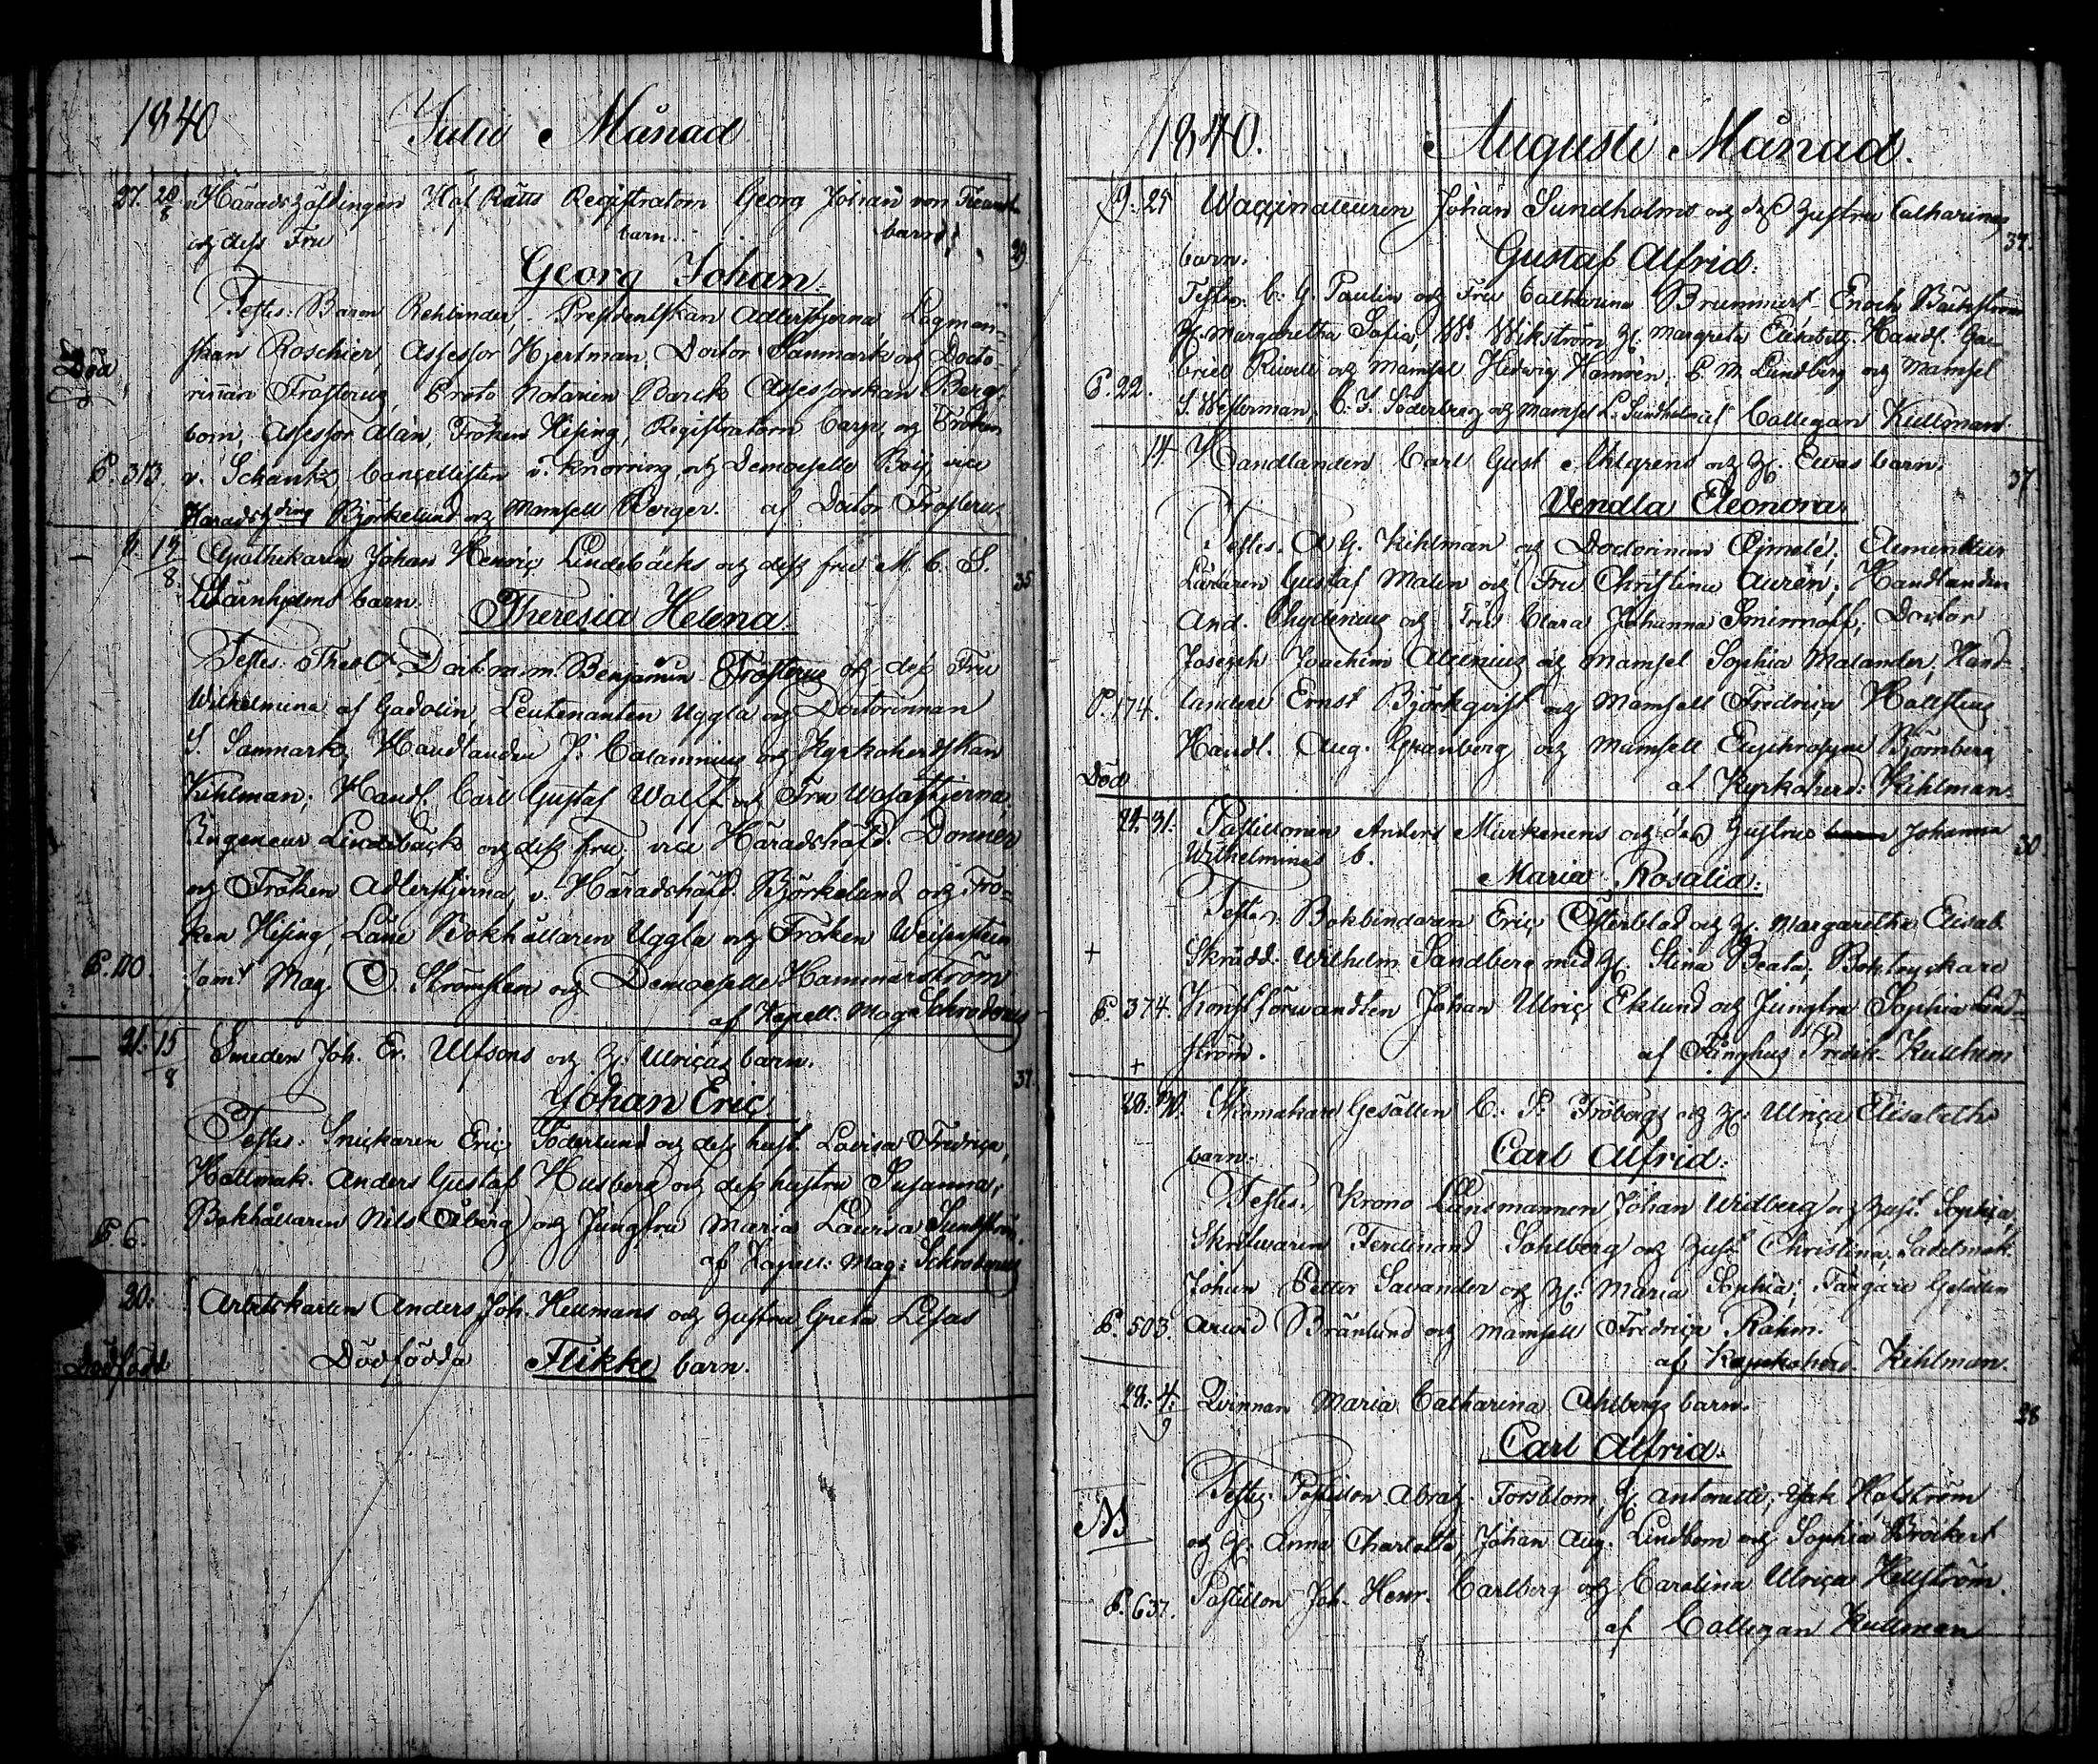 1840 Julii Månad
27. 28/8 Häradshöfdingen Hof Rätts Registratorn Georg Johan von
och dess Fru barn
29
Georg Johan.
Testes: Baron Rehbinder, Presidentskan Adlerstjerna, Lagman-
skan Roschier, Assessor Hjertman, Doctor Sanmark och Docto-
Död
rinnan Frosterus, Proto Notarien Barck Assessorskan Berg-
bom, Assessor Alan, Fröken Hising, Registratorn Carp, og Fröken
P. 313. v. Schantz, Cancellisten v. Knorring och Demoiselle Boij, vice
Häradshding Björkelund och Mamsell Berger. af Doctor Frosterus
19/8. Apothekaren Johan Henric Lindebäcks och dess fru M. C. S.
35
barn.
Theresia Helena.
Testes: Theol. Doct. m.m. Benjamin Frosterus och dess Fru
Wilhelmina af Gadolin, Leutenanten Uggla och Doctorinnan
S. Sanmark, Handlanden J. Calamnius och Kyrkoherdskan
Kihlman; Handl. Carl Gustaf Wolff och Fru Wasastjerna,
Ingeneur Lindebäck och dess fru, vice Häradshöfd. Donner
och Fröken Adlerstjerna, v. Häradshöfd Björkelund och Frö-
ken Hising, Läne Bokhållaren Uggla och Fröken Weisenstein
P. 20.
samt Mag. O. Strömsten och Demoiselle Hammarström
af Kapell. Mag. Schroderus
21. 15/8 Smeden Joh. Er. Ulfsons och H. Ulricas barn.
37.
Johan Eric
Testes: Snickaren Eric Söderlund och dess hust. Lovisa Fredrica,
Hattmak. Anders Gustaf Husberg och dess hustru Susanna;
Bokhållaren Nils Öberg och Jungfru Maria Lovisa
P. 6.
af Kapell: Mag: Schroderus
30: Arbetskarlen Anders Joh. Hellmans och hustru Greta Lisas
Dödfödt
Dödfödda Flikke barn.
1840. Augusti Månad.
9. 25 Waccinateuren Johan Sundholms och dess hustru Catharinas
34.
barn.
Gustaf Alfrid.
Testes. C. G. Paulin och Fru Catharina Brummert, Enoch Bäckström
H. Margaretha Sofia, W. Wikström H. Margreta Elisabeth. Handl. Ga-
briel Riwell och Mamsel Hedwig Hamrén, C. M. Lundberg och Mamsel
P. 22.
S. Westerman, C. J. Söderberg och Mamsel L. Sundholm af Collegan Kullman
14. Handlanden Carl Gust. Ahlgrens och H. Evas barn.
37.
Vendla Eleonora
Testes. A. G. Kihlman och Doctorinnan Ejmelé; Elementar
Läraren Gustaf Malin och Fru Christina Aurén; Handlanden
And. Chydenius och Fru Clara Johanna Smirnoff; Doctor
Joseph Joachim Alcenius och Mamsel Sophia Malander, Hand-
P. 174. landen Ernst Björkqvist och Mamsell Fredrica Hallstens
Handl. Aug. Granberg och Mamsell Euphrosyne Björnberg
Död
af Kyrkoherd: Kihlman.
24. 31. Postillonen Anders Murkenens och dess hustrus barn Johanna
30
Wilhelminas b.
Maria Rosalia.
Testes: Bokbindaren Eric Österblad och H. Margaretha Elisab.
+
Skrädd: Wilhelm Sandberg med H. Stina Beata, Boktryckare
P. 374. Konstförwandten Johan Ulric Eklund och Jungfru Sophia Lind-
+
ström. af Tuchthus Predik. Kullman
28: 30. Skomakare Gesällen C. P. Frobergs och H. Ulrica Elisabeths
barn.
Carl Alfrid.
Testes. Krono Länsmannen Johan Widberg och hust. Sophia,
Skrifwaren Ferdinand Sahlberg och hust Christina, Sadelmak.
Johan Petter Savander och H. Maria Sophia, Färgare Gesällen
P. 503. Arvid Bränlund och Mamsell Fredrica Rahm.
af Kyrkoherd. Kihlman.
28. 4/9 Qvinnan Maria Catharina Ahlbergs barn.
28
Carl Alfrid.
Testes. Postillon Abrah. Forsblom, H. Antonette, Isak Holström
N
och H. Anna Charlotta, Johan Aug. Lindbom och Sophia Bröckert
P. 637. Postillon Joh. Henr. Carlberg och Carolina Ulrica Hellström.
af Collegan Kullman